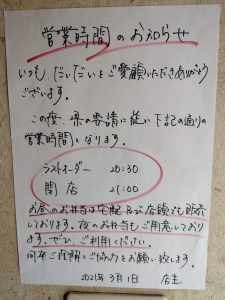 営業時間のお知らせ
いつも、だいだいをご愛顧いただきありがとう
ございます。
この度、県の要請に従い下記の通りの
営業時間となります。
ラストオーダー 20:30
閉店 21:00
お昼のお弁当は宅配及び店頭でも販売
しております。夜のお弁当もご用意しておりま
す。ぜひ、ご利用ください。
何卒ご理解とご協力をお願い致します。
2021年3月1日 店主